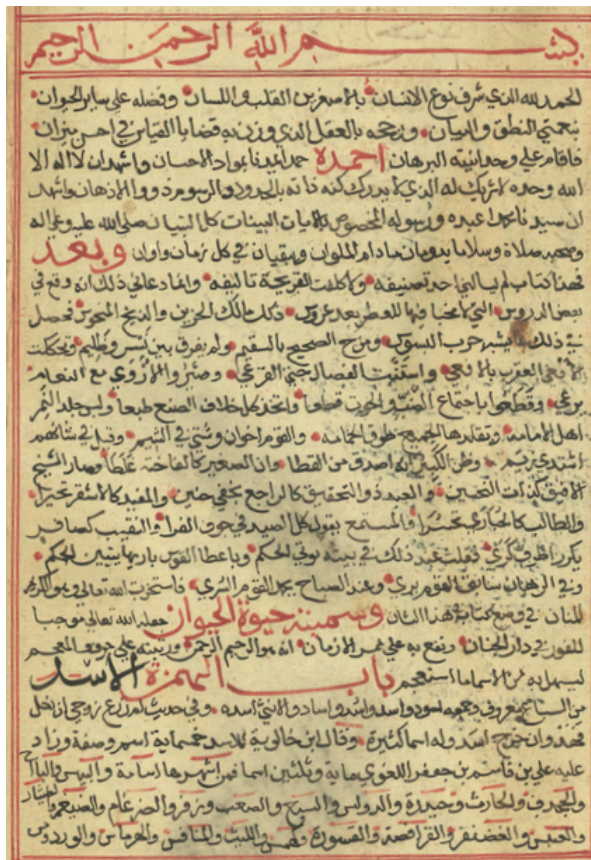 بسم الله الرحمن الرحيم
الحمد لله الذي شرف نوع الانسان بالاصغرين القلب واللسان وفضله على ساير الحيوان
بنعمتي النطق والبيان ورجحه بالعقل الذي وزن به قضايا القياس في احسن ميزان
فاقام على وحدانيته البرهان احمده حمدا يمدنا بمواد الاحسان واشهد ان لا اله الا
الله وحده لا شريك له الذي لا يدرك كنه ذاته بالحدود والرسوم ذووا الاذهان واشهد
ان سيدنا محمدا عبده ورسوله المخصوص بالايات البينات كل التبيان صلى الله عليه وعلى اله
وصحبه صلاة وسلاما يدومان ما دام الملوان ويبقيان في كل زمان واوان وبعد
فهذا كتاب لم يسالني احد تصنيفه ولا كلفت القريحة تاليفه وانما دعاني الى ذلك انه وقع في
بعض الدروس التي لا مخبا فيها لعطر بعد عروس ذكر مالك الحزين والذيخ المنحوس فحصل
في ذلك ما يشبه حرب البسوس ومزج الصحيح بالسقيم ولم يفرق بين نسر وظليم وتحككت
العقرب بالافعى واستنت الفصال حتى القرعى وصير والاروى مع النعام
ترعى وقطعوا باجتماع الضب والحوت قطعا واتخذ كل اخلاق الضبع طبعا ولبس جلد النمر
اهل الامامة وتقلدها الجميع طوق الحمامة والقوم اخوان وشتى في الشيم وقيل في شانهم
اشتدي زيم وظن الكبير انه اصدق من القطا وان الصغير كالفاختة غلطا وصار الشيخ
الافيق كذات النحيين والمعيد ذو التحقيق كالراجع بخفي حنين والمفيد كالاشقر تحيرا
والطالب كالحبارى تحسرا والمستمع يقول كل الصيد في جوف الفرا والنقيب كصافر
يكرر اطرق كرى فقلت عند ذلك في بيته يوتى الحكم وباعطا القوس باريها يتبين الحكم
وفي الرهان سابق القوم يرى وعند الصباح يحمد القوم السرى فاستخرت الله تعالى وهو الكريم
المنان في وضع كتاب في هذا الشان وسميته حيوة الحيوان جعله الله تعالى موجبا
للفوز في دار الجنان ونفع به على ممر الازمان انه هو الرحيم الرحمن ورتبته على حروف المعجم
ليسهل به من الاسما ما استعجم باب الهمزة الاسد
من السباع معروف وجمعه اسود واسد واسد واساد والانثى اسده وفي حديث ام زرع زوجي ان دخل
فهد وان خرج اسد وله اسما كثيرة وقال ابن خالويه للاسد خمسماية اسم وصفة وزاد
عليه علي بن قاسم بن جعفر اللغوي ماية وثلثين اسما فمن اشهرها اسامة والبيهس والتاج
والجحدب والحارث وحيدرة والدواس والسبع والصعب وزفر والضرغام والضيغم
والعنبس والغضنفر والفرافصة والقسورة وكهمس والليث والمتانس والهرماس والورد